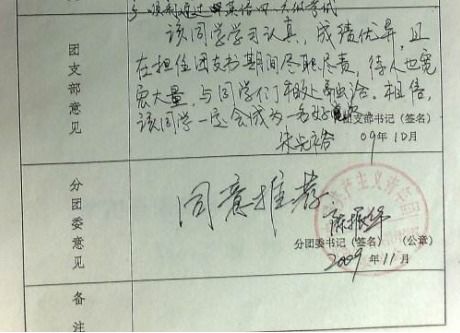 顺利通过英语四、六级考试
团支部意见
该同学学习认真,成绩优异,且
在担任团支书期间尽职尽责,待人也宽
宏大量,与同学们相处融洽。相信,
该同学一定会成为一名好党员
团支部书记(签名)
09年10月
分团委意见
同意推荐
分团委书记(签名) (公章)
2009年11月
备注